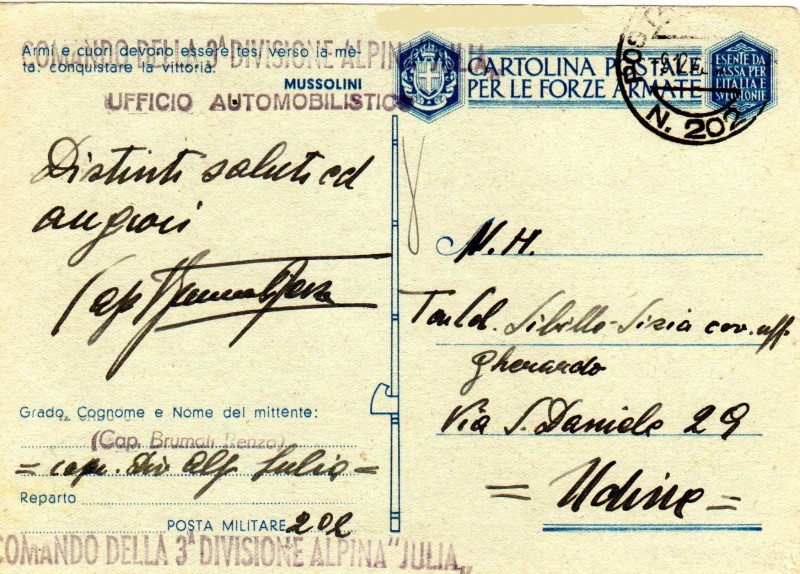 COMANDO DELLA 3ª DIVISIONE ALPINA "JULIA"
Armi e cuori devono essere tesi, verso la mè-
ta: conquistare la vittoria.
MUSSOLINI
UFFICIO AUTOMOBILISTICO
CARTOLINA POSTALE
PER LE FORZE ARMATE
ESENTE DA
TASSA PER
L'ITALIA E
SUE COLONIE
POSTA
N. 202
Distinti saluti ed
auguroi
Cap
N. H.
Ten. Col. Sibille-Sizia cav. uff.
Gherardo
Via S. Daniele 29
= Udine =
Grado, Cognome e Nome del mittente:
(Cap. Brumati Renzo)
= Div Alp. Julia =
Reparto
POSTA MILITARE 202
COMANDO DELLA 3ª DIVISIONE ALPINA "JULIA"